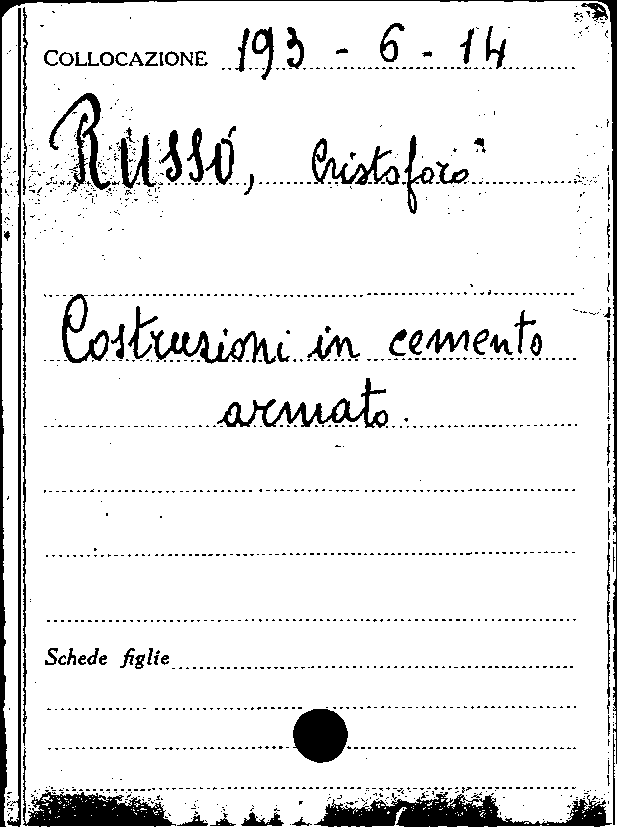 COLLOCAZIONE 193 - 6 - 14
RUSSO, Cristoforo
Costruzioni in cemento
armato.
Schede figlie